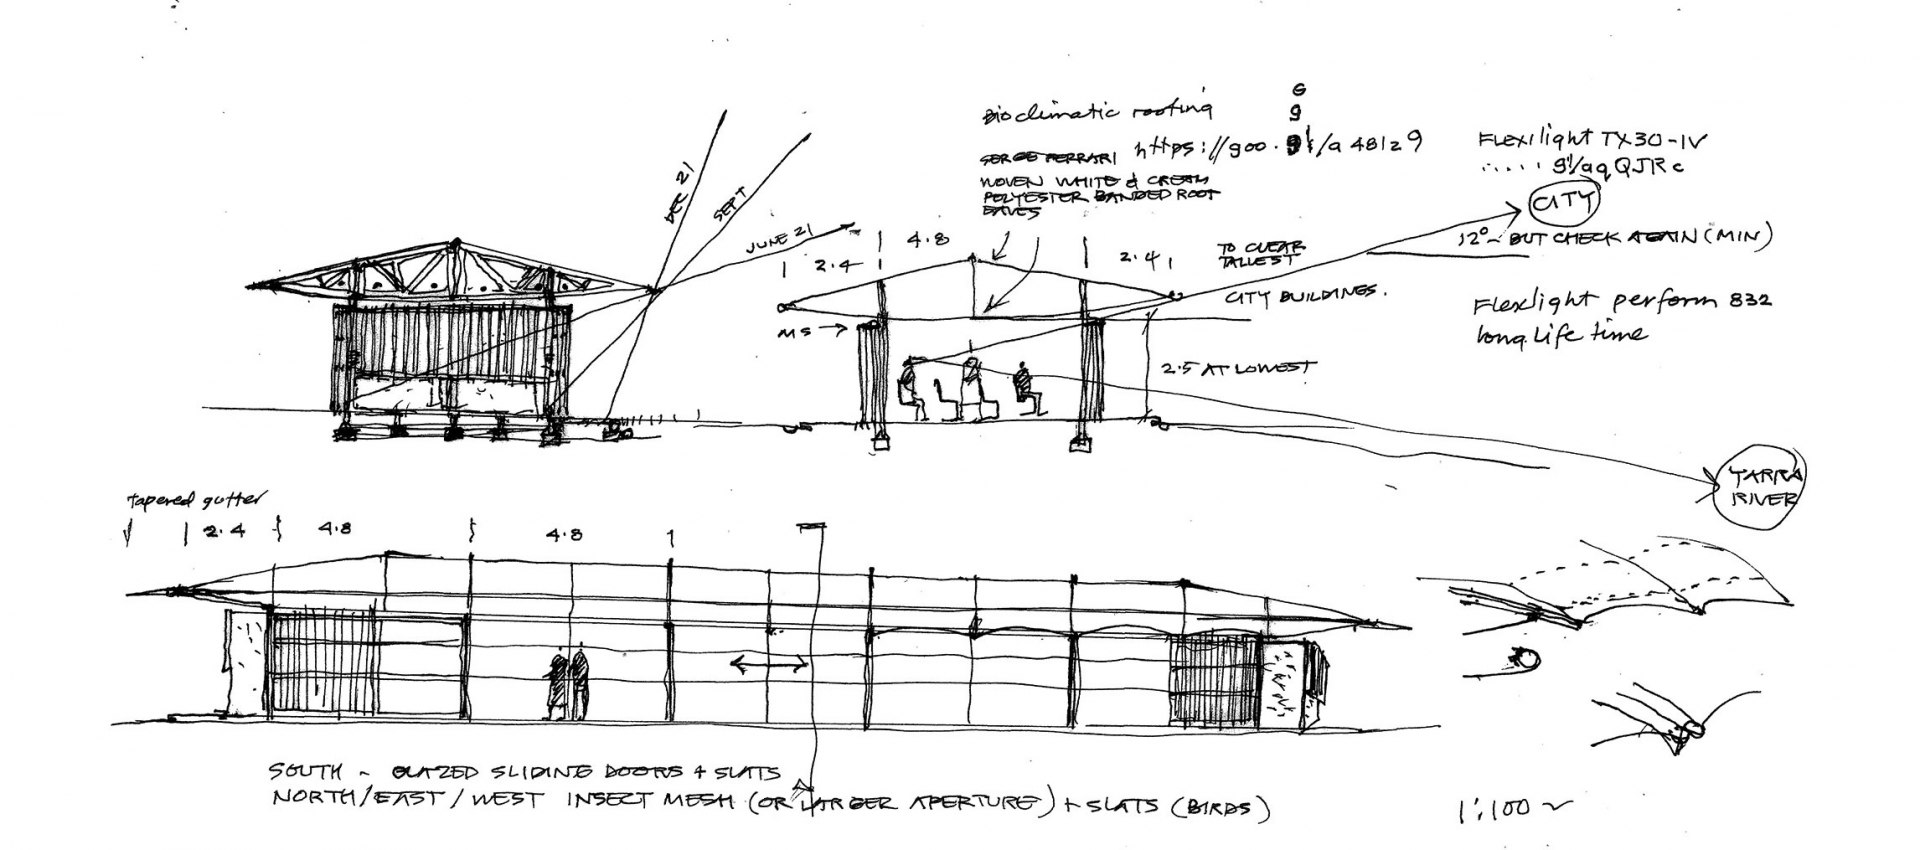 G
Bioclimatic roofing
g
https://goo.gl/a48129
SERGE FERRARI
WOVEN WHITE & CREAM
POLYESTER BANDED ROOF
EAVES
Flexilight TX30-IV
..... gl/aqQJRc
CITY
12° ~ BUT CHECK AGAIN (MIN)
DEC 21
SEPT
JUNE 21
4.8
2.4
2.4
TO CLEAR
TALLEST
CITY BUILDINGS.
Flexlight perform 832
long life time
MS
2.5 AT LOWEST
YARRA
RIVER
tapered gutter
2.4
4.8
4.8
SOUTH ~ GLAZED SLIDING DOORS + SLATS
NORTH/EAST/WEST INSECT MESH (OR LARGER APERTURE) + SLATS (BIRDS)
1:100 ~